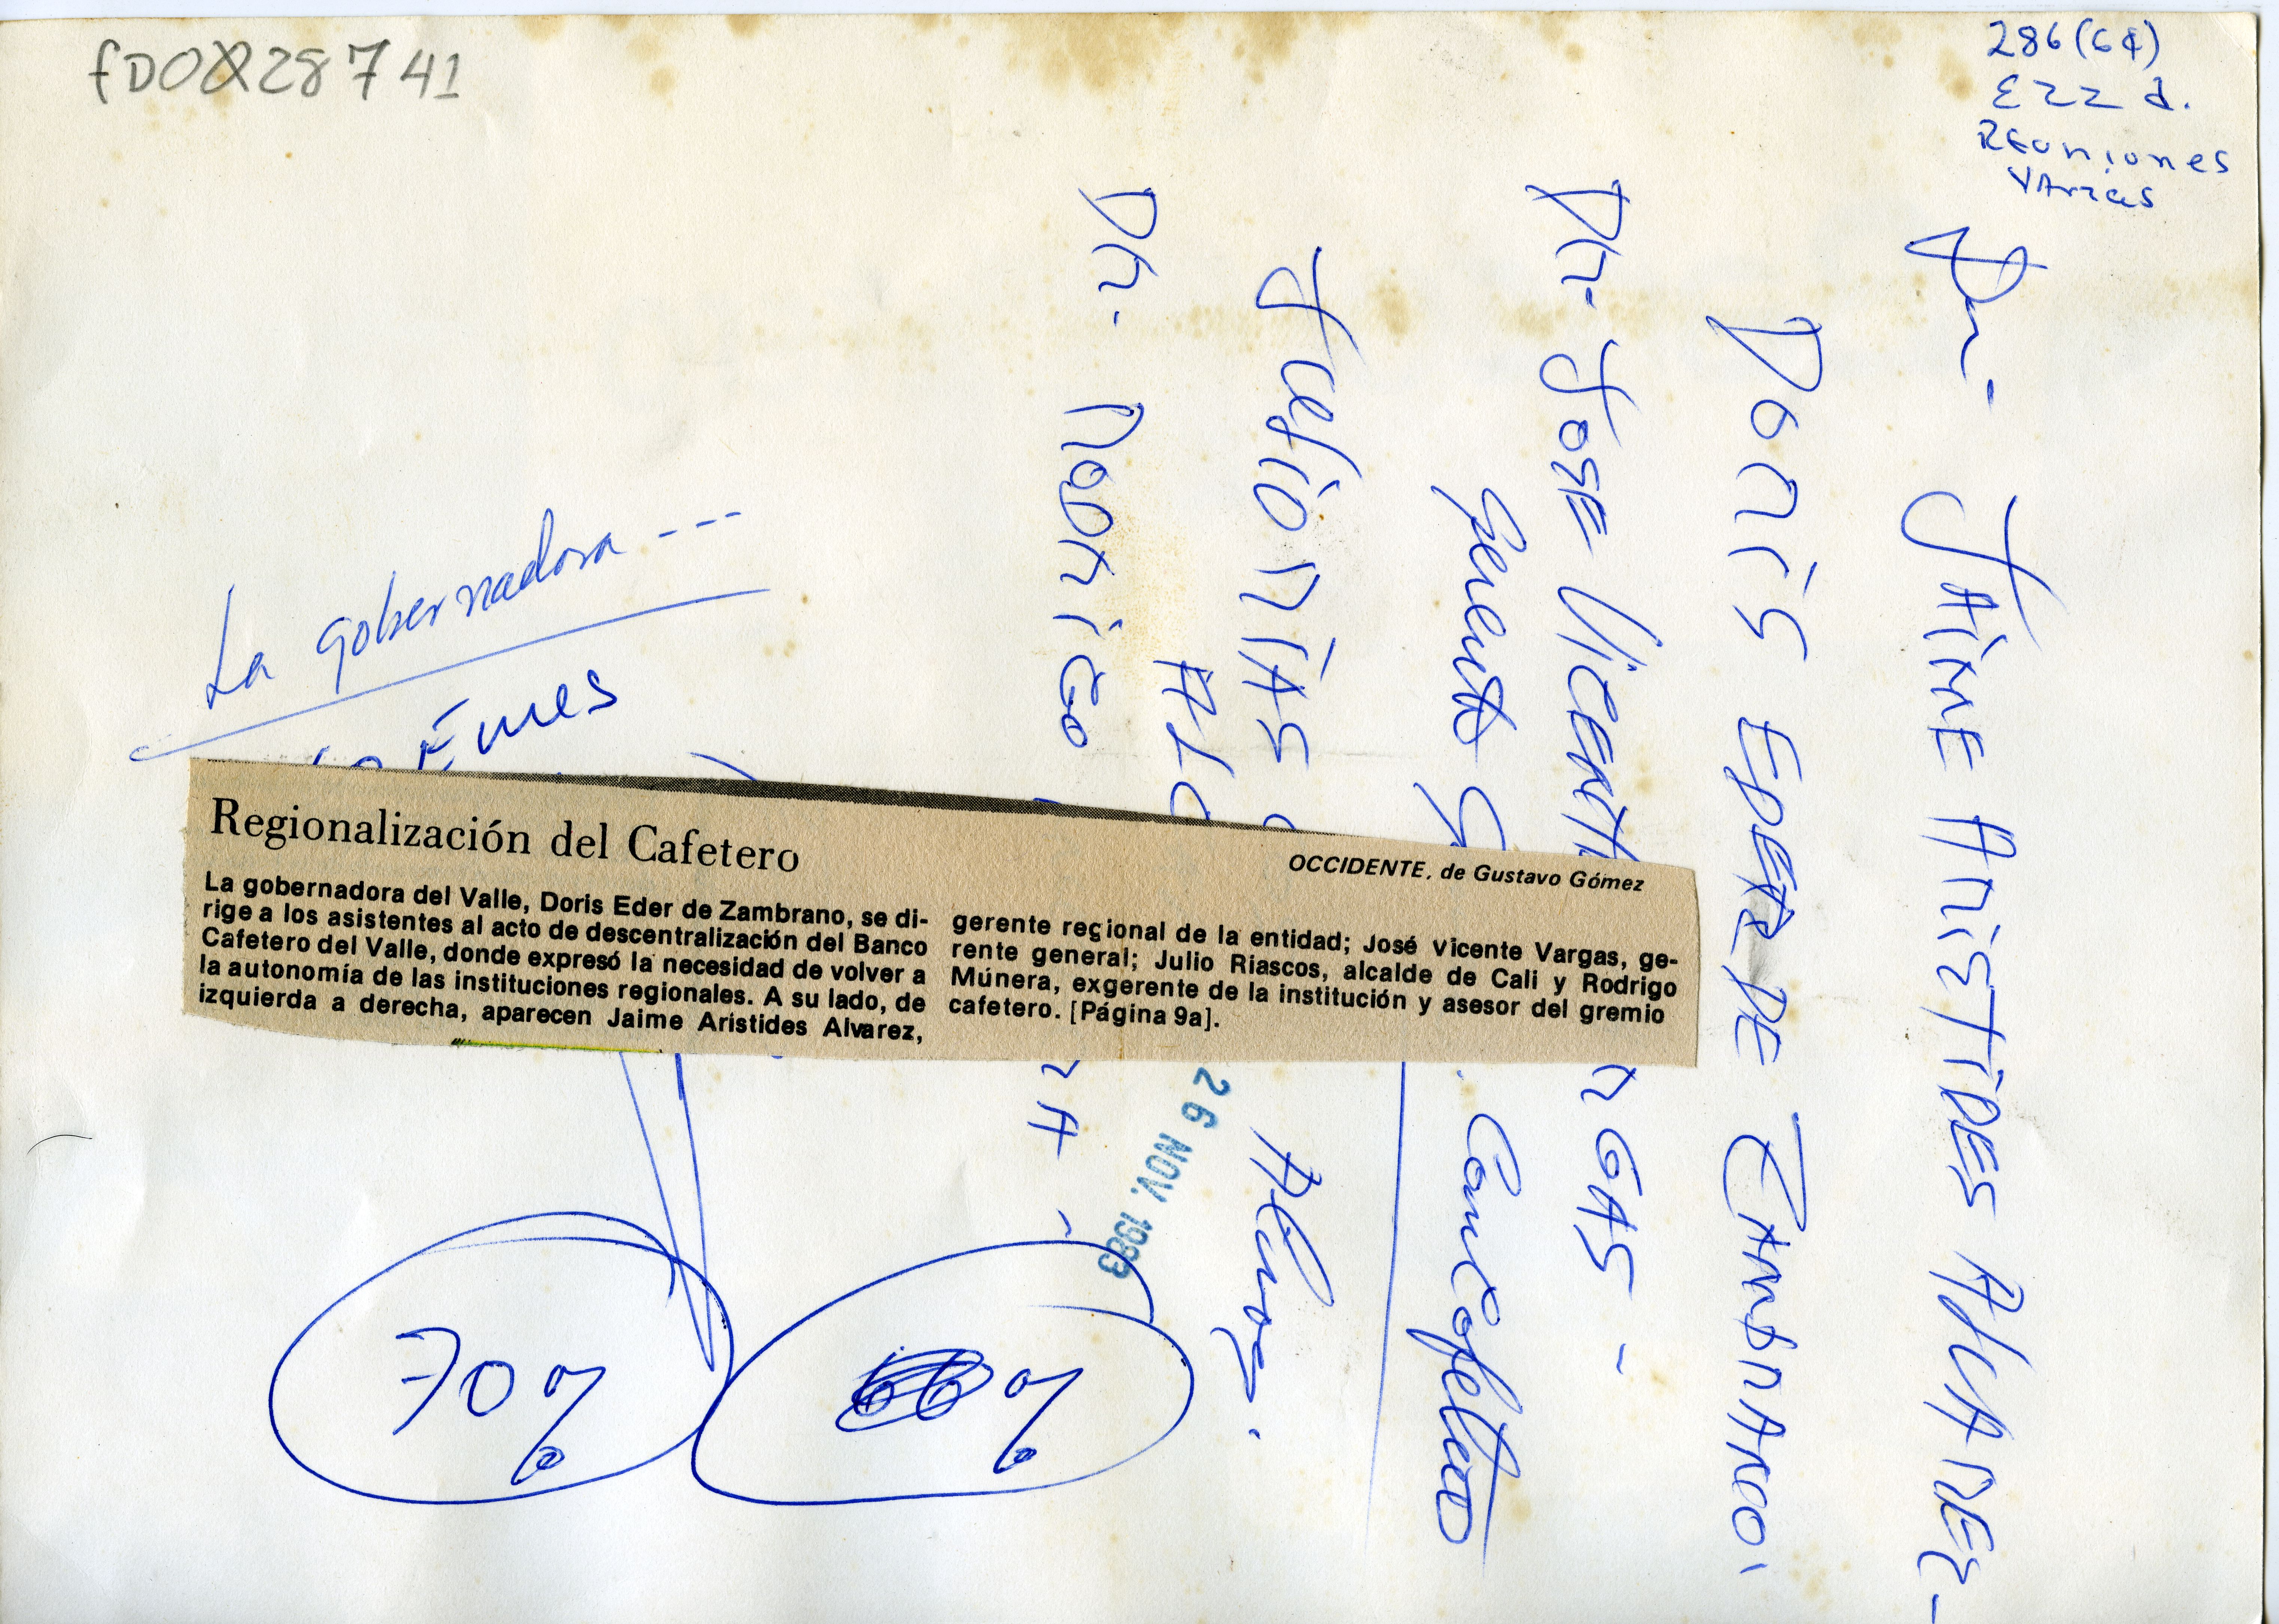 fD0028741
286(64)
E22 d.
Reuniones
Varias
Dr- JAIME ARISTIDES ALVAREZ-
DORIS EDER DE ZAMBRANO.
Dr- JOSE VICENTE
RGAS-
Gerente G
. Con Cafetero
Julio RIAS
Alc
Dr. Rodrigo
La gobernadora---
Regionalización del Cafetero
OCCIDENTE, de Gustavo Gómez
La gobernadora del Valle, Doris Eder de Zambrano, se di-
rige a los asistentes al acto de descentralización del Banco
Cafetero del Valle, donde expresó la necesidad de volver a
la autonomía de las instituciones regionales. A su lado, de
izquierda a derecha, aparecen Jaime Aristides Alvarez,
gerente regional de la entidad; José Vicente Vargas, ge-
rente general; Julio Riascos, alcalde de Cali y Rodrigo
Múnera, exgerente de la institución y asesor del gremio
cafetero. [Página 9a].
RA -
26 NOV. 1983
70%
%